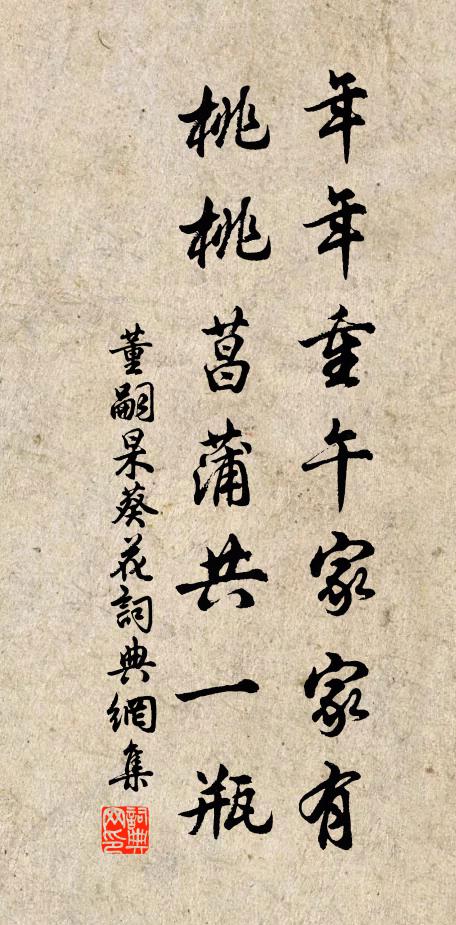 年年重午家家有
桃桃菖蒲共一瓶
董嗣杲葵花詞典網集
詞典网印